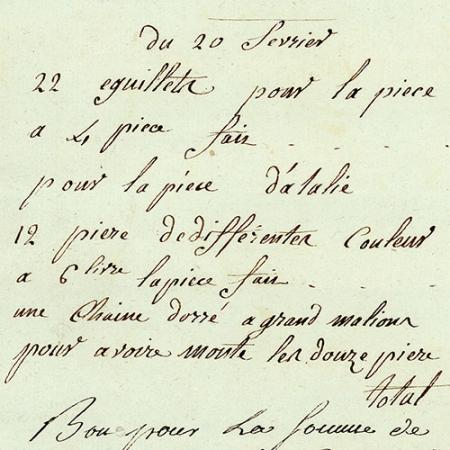 du 20 fevrier
22 eguilletes pour la piece
a 4 piece fait . . . .
pour la piéce d'atalie
12 piere dedifférentes Couleur
a 6 livre lapiece fait . . . .
une Chaine dorré a grand malions
pour avoire monte les douze piere
total
Bon pour La somme de